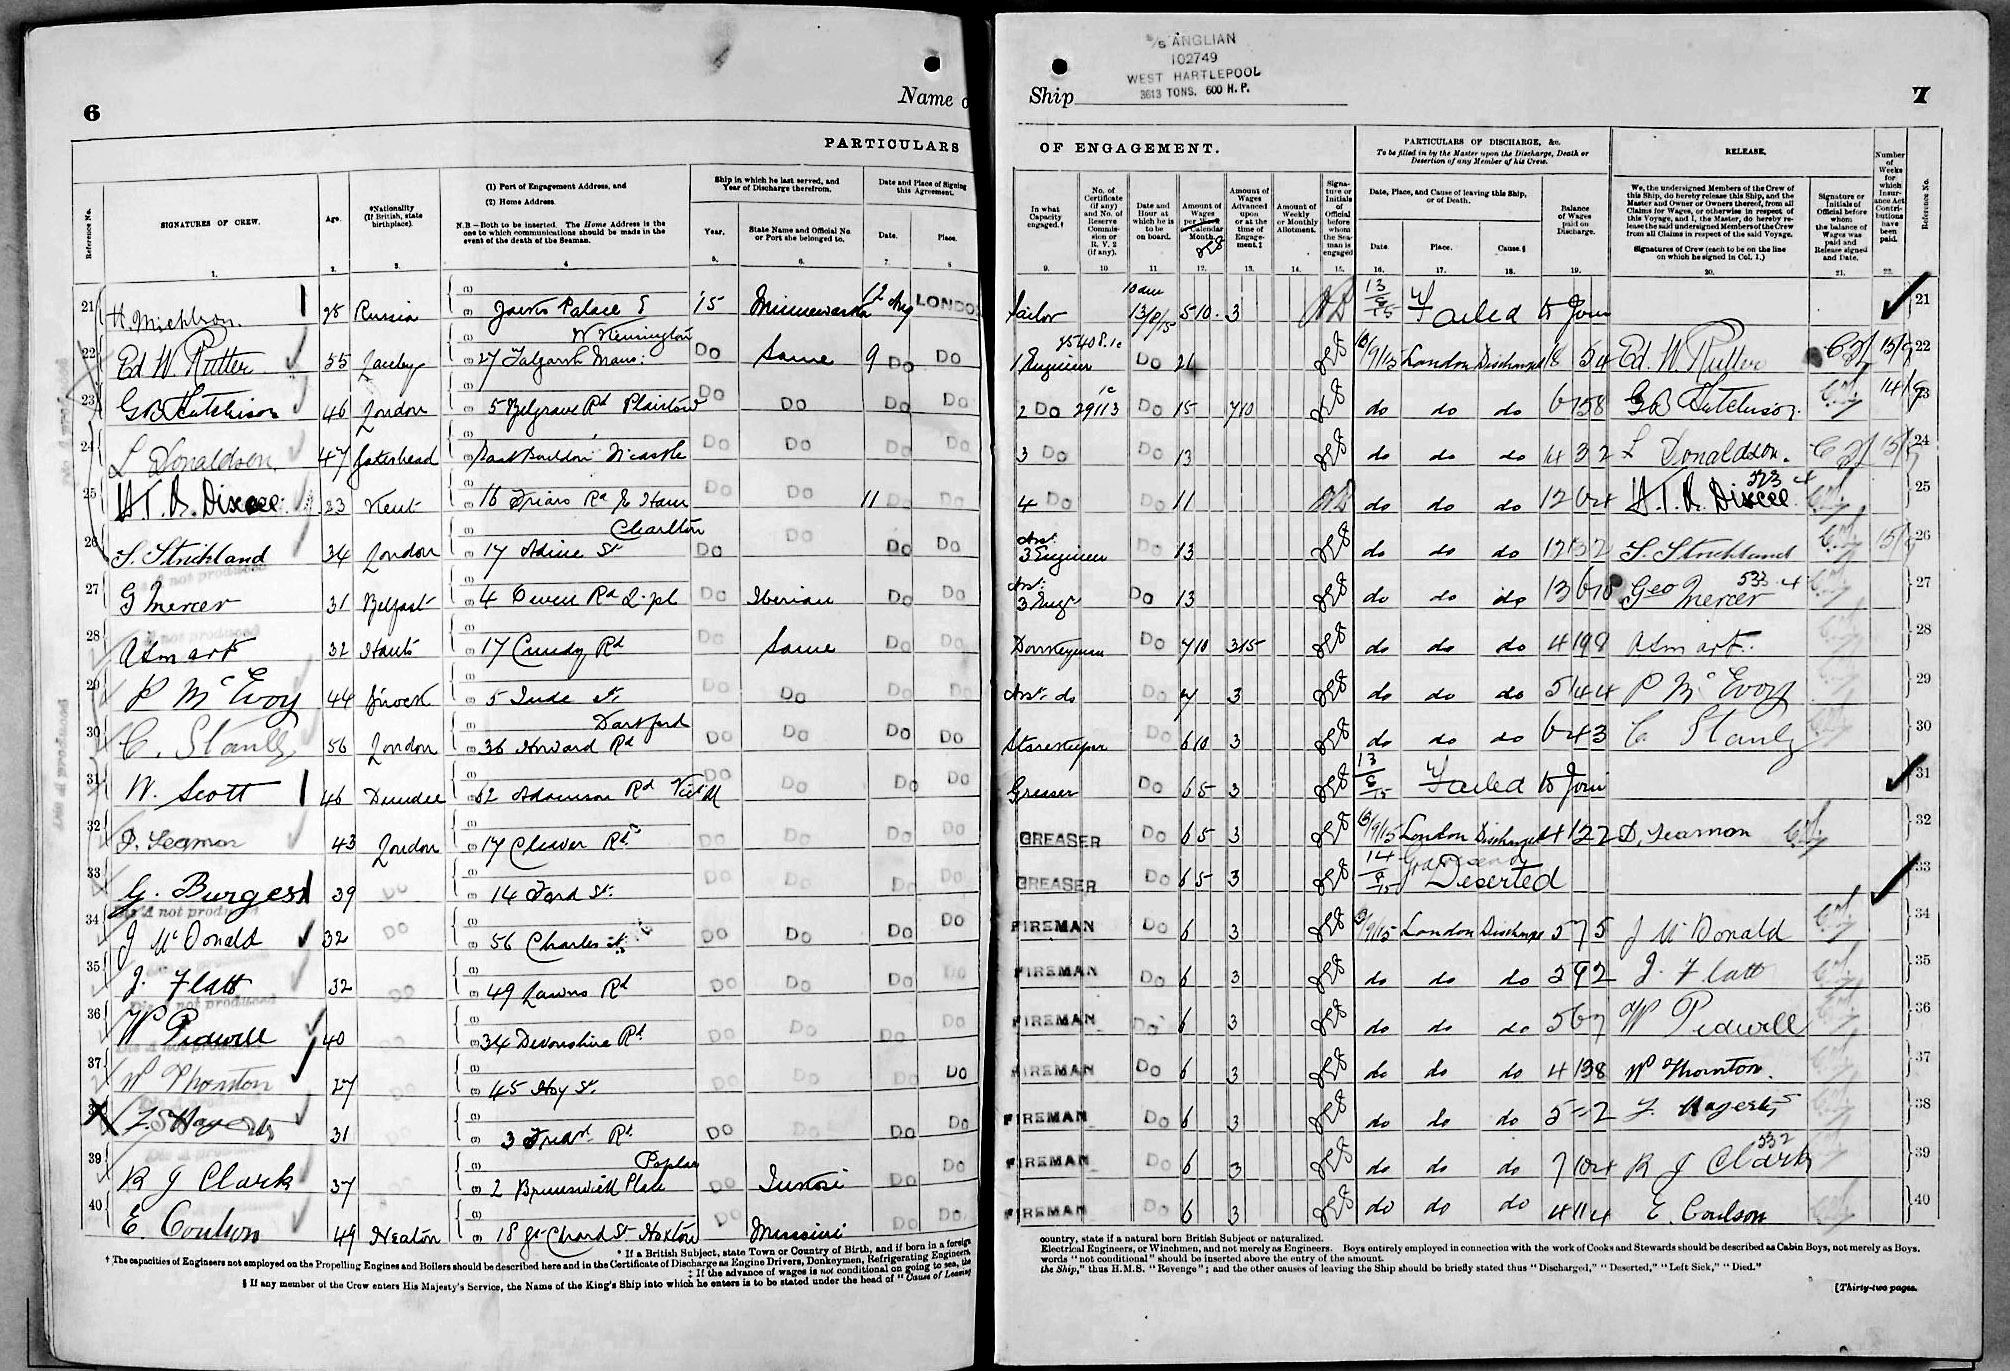 6
Name o
PARTICULARS
Reference No.
SIGNATURES OF CREW.
Age.
*Nationality
(If British, state
birthplace).
(1) Port of Engagement Address, and
(2) Home Address.
N.B.—Both to be inserted. The Home Address is the
one to which communications should be made in the
event of the death of the Seaman.
Ship in which he last served, and
Year of Discharge therefrom.
Year.
State Name and Official No.
or Port she belonged to.
Date and Place of Signing
this Agreement.
Date.
Place.
1. 2. 3. 4 5. 6. 7 8
21 28 Russia '15 LONDO
22 Ed W. Rutter 35 27 Talgarth Mans: W Kensington Do Same 9 Do Do
23 GB Hutchison 46 London 5 Belgrave Rd Plaistow Do Do Do Do
24 L Donaldson 47 Gateshead Do Do Do Do
25 23 Kent 16 Friars Rd E Ham Do Do 11 Do
26 S. Strickland 34 London 17 St Charlton Do Do Do Do
27 G Mercer 31 Belfast 4 Rd L'pl Do Iberian Do Do
28 A Smart 32 Hants 17 Cundy Rd Do Same Do Do
29 P McEvoy 44 5 Jude St. Do Do Do Do
30 C. Stanly 56 London 36 Howard Rd Dartford Do Do Do Do
31 W. Scott 46 Dundee 62 Adamson Rd Do Do Do Do
32 D. Seamon 43 London 17 Clever Rd Do Do Do Do
33 G. Burgess 39 Do 14 Ford St. Do Do Do Do
34 J McDonald 32 Do 56 Charles St. Do Do Do Do
35 J. Flatt 32 Do 49 Rd Do Do Do Do
36 W Pidwell 40 Do 34 Devonshire Rd Do Do Do Do
37 W Thornton 27 Do 45 Hoy St. Do Do Do Do
38 31 3 Rd Do Do Do Do
39 R J Clark 37 2 Brunswick Place Poplar Do Do Do
40 E. Coulson 49 18 St Hoxton Do Missouri Do Do
* If a British Subject, state Town or Country of Birth, and if born in a foreign
† The capacities of Engineers not employed on the Propelling Engines and Boilers should be described here and in the Certificate of Discharge as Engine Drivers, Donkeymen, Refrigerating Engineers,
‡ If the advance of wages is not conditional on going to sea, the
§ If any member of the Crew enters His Majesty's Service, the Name of the King's Ship into which he enters is to be stated under the head of "Cause of Leaving
S/S ANGLIAN
102749
WEST HARTLEPOOL
3613 TONS. 600 H.P.
Ship
7
OF ENGAGEMENT.
In what
Capacity
engaged.†
No. of
Certificate
(if any)
and No. of
Reserve
Commis-
sion or
R. V. 2
(if any).
Date and
Hour at
which he is
to be
on board.
Amount of
Wages
per Week
Calendar
Month.
Amount of
Wages
Advanced
upon
or at the
time of
Engage-
ment.‡
Amount of
Weekly
or Monthly
Allotment.
Signa-
ture or
Initials
of
Official
before
whom
the Sea-
man is
engaged
PARTICULARS OF DISCHARGE, &c.
To be filled in by the Master upon the Discharge, Death or
Desertion of any Member of his Crew.
Date, Place, and Cause of leaving this Ship,
or of Death.
Date.
Place.
Cause.§
Balance
of Wages
paid on
Discharge.
RELEASE.
We, the undersigned Members of the Crew of
this Ship, do hereby release this Ship, and the
Master and Owner or Owners thereof, from all
Claims for Wages, or otherwise in respect of
this Voyage, and I, the Master, do hereby re-
lease the said undersigned Members of the Crew
from all Claims in respect of the said Voyage.
Signatures of Crew (each to be on the line
on which he signed in Col. 1.)
Signature or
Initials of
Official before
whom
the balance of
Wages was
paid and
Release signed
and Date.
Number
of
Weeks
for
which
Insur-
ance Act
Contri-
butions
have
been
paid.
Reference No.
9. 10 11 12. 13. 14. 15. 16. 17. 18. 19. 20. 21. 22.
Sailor 5 10 3 Failed to Join 21
1 Engineer Do London Discharged Ed. W. Rutter 22
2 Do 29113 Do 15 7 10 do do do GB Hutchison 23
3 Do Do 13 do do do L Donaldson. 24
4 Do Do 11 do do do 25
Asst. 3 Engineer Do 13 do do do S. Strickland 26
Asst. 3 Engr Do 13 do do do Geo Mercer 27
Donkeyman Do 7 10 3 15 do do do 4 19 8 A Smart. 28
Asst. do Do 7 3 do do do 5 14 4 P McEvoy 29
Storekeeper Do 6 10 3 do do do 6 4 3 C Stanly 30
Greaser Do 6 5 3 Failed to Join 31
GREASER Do 6 5 3 London Discharged 4 12 2 D, Seamon 32
GREASER Do 6 5 3 Gravesend Deserted 33
FIREMAN Do 6 3 London Discharged 5 7 5 J McDonald 34
FIREMAN Do 6 3 do do do 2 9 2 J. Flatt 35
FIREMAN Do 6 3 do do do 5 6 7 W Pidwell 36
FIREMAN Do 6 3 do do do 4 13 8 W Thornton. 37
FIREMAN Do 6 3 do do do 5 - 2 38
FIREMAN Do 6 3 do do do 7 10 4 R J Clark 39
FIREMAN Do 6 3 do do do 4 11 4 E. Coulson 40
country, state if a natural born British Subject or naturalized.
Electrical Engineers, or Winchmen, and not merely as Engineers. Boys entirely employed in connection with the work of Cooks and Stewards should be described as Cabin Boys, not merely as Boys.
words "not conditional" should be inserted above the entry of the amount.
the Ship," thus H.M.S. "Revenge"; and the other causes of leaving the Ship should be briefly stated thus "Discharged," "Deserted," "Left Sick," "Died."
[Thirty-two pages.